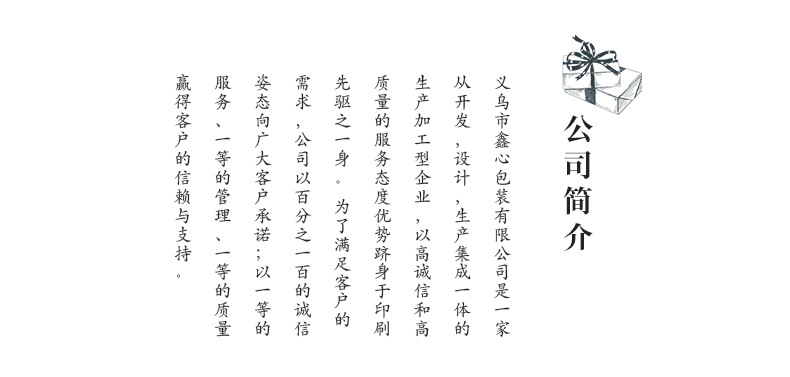 公司简介
义乌市鑫心包装有限公司是一家
从开发,设计,生产集成一体的
生产加工型企业,以高诚信和高
质量的服务态度优势跻身于印刷
先驱之一身。为了满足客户的
需求,公司以百分之一百的诚信
姿态向广大客户承诺;以一等的
服务、一等的管理、一等的质量
赢得客户的信赖与支持。